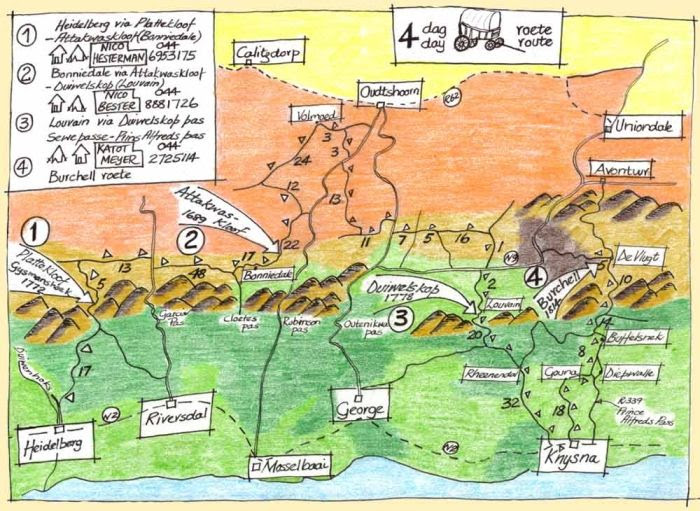 ① Heidelberg via Plattekloof
- Attakwaskloof (Bonniedale)
NICO HESTERMAN 044 6953175
② Bonniedale via Attakwaskloof
- Duiwelskop (Louvain)
NICO BESTER 044 8881726
③ Louvain via Duiwelskop pas
Sewepasse - Prins Alfreds pas
KATOT MEYER 044 2725114
④ Burchell roete
4 dag roete
day route
Calitzdorp
Oudtshoorn
R62
Uniondale
Volmoed
3
3
24
12
13
Avontuur
Attakwas-
Kloof
1689
①
②
22
11
7
5
16
1
Plattekloof
1772
5
13
48
17
Bonniedale
N9
④
De Vlugt
10
Burchell
Duiwelskop
1778
2
Louvain
③
Cloetes
pas
Robinson
pas
Outeniekwa
pas
20
14
Buffelsnek
8
Duiwenhoks
17
Rheenendal
Gouna
Diepwalle
32
18
R339
Prince
Alfreds Pass
N2
Riversdal
George
Heidelberg
N2
Mosselbaai
Knysna